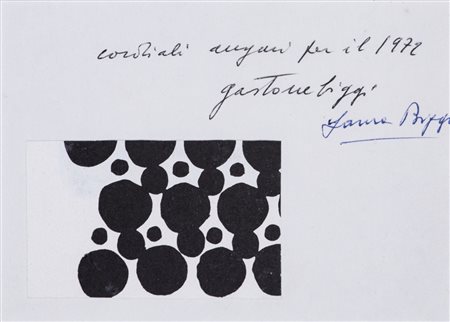 cordiali auguri per il 1972
gastone biggi
Biggi